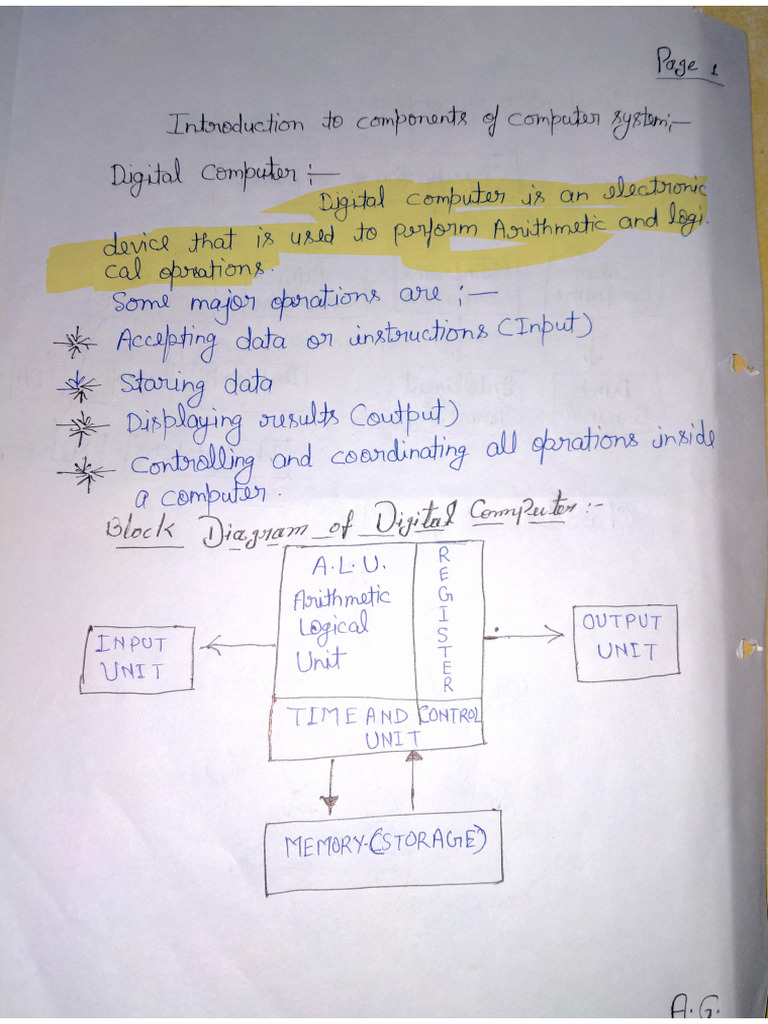 Page 1
Introduction to components of computer system;-
Digital computer ;-
Digital computer is an electronic
device that is used to perform Arithmetic and logi.
cal oprations.
Some major oprations are ;-
Accepting data or instructions (Input)
Staring data
Displaying results (output)
Controlling and coordinating all oprations inside
a computer.
Block Diagram of Digital Computer:-
A.L.U.
Arithmetic
Logical
Unit
REGISTER
INPUT
UNIT
OUTPUT
UNIT
TIME AND CONTROL
UNIT
MEMORY.(STORAGE)
A.G.